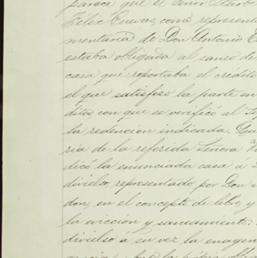 parece que el Señor
Felix Cuevas como represent
mentaria de Don Antonio E
estaba obligado al saneo de
casa que reportaba el credito
el que satisfizo la parte en
ditos con que se verificó el
la redencion indicada.
ria de la referida Señora
decó la enunciada casa á
divielso, representado por Don
don, en el concepto de libre, y
la eviccion y saneamiento:
divielso á su vez la enagen